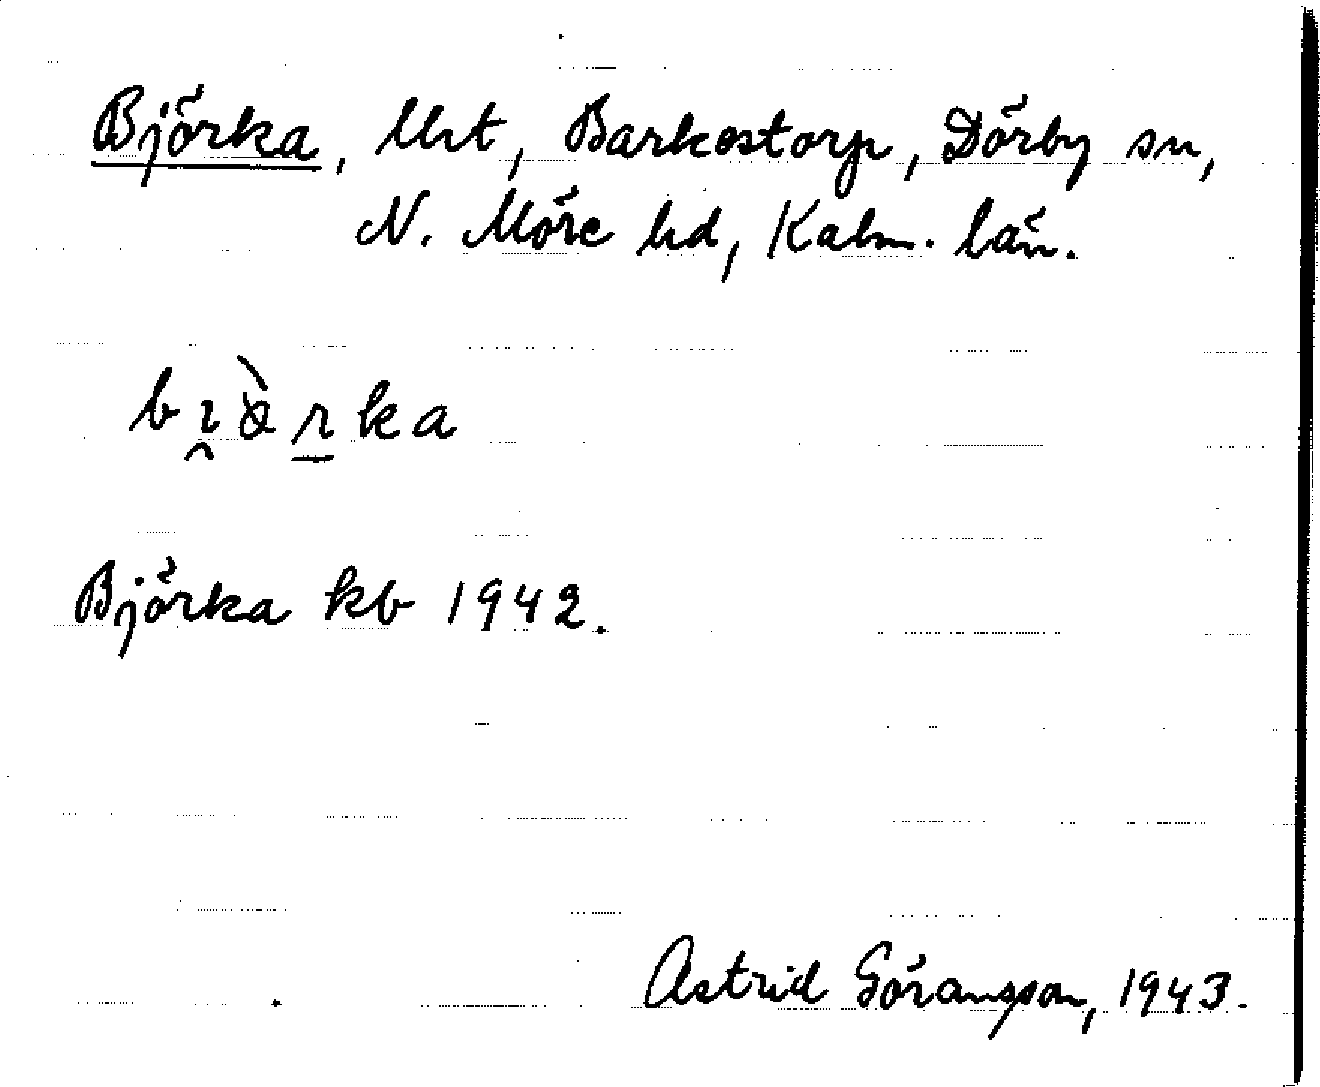 Björka, lht, Barkestorp, Dörby sn,
N. Möre hd, Kalm. län.
Björka kb 1942.
Astrid Göransson, 1943.